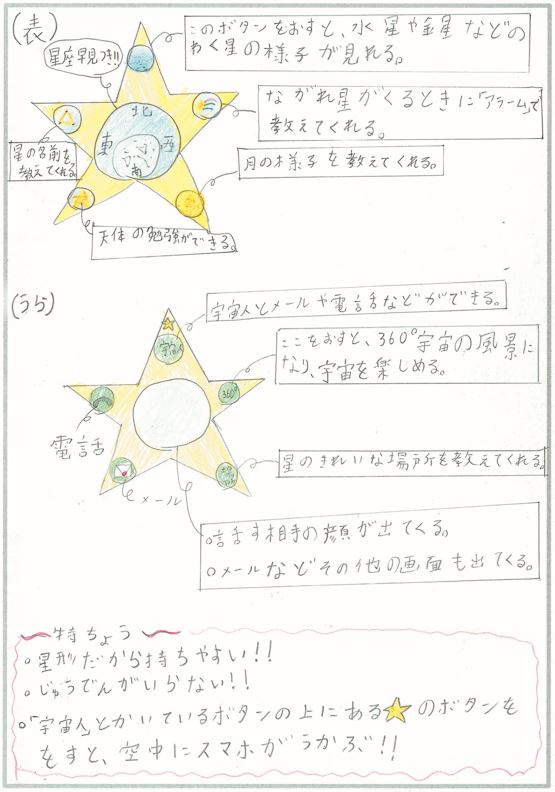 (表)
このボタンをおすと、水星や金星などの
わく星の様子が見れる。
星座早見つき!!
ながれ星がくるときに「アラーム」で
教えてくれる。
北
東
西
南
月の様子を教えてくれる。
星の名前を
教えてくれる
天体の勉強ができる。
(うら)
宇宙人とメールや電話などができる。
宇宙人
ここをおすと、360°宇宙の風景に
なり、宇宙を楽しめる。
360°
電話
星のきれいな場所を教えてくれる。
メール
○話す相手の顔が出てくる。
○メールなどその他の画面も出てくる。
特ちょう
○星形だから持ちやすい!!
○じゅうでんがいらない!!
○「宇宙人」とかいているボタンの上にある★のボタンを
をすと、空中にスマホがうかぶ!!